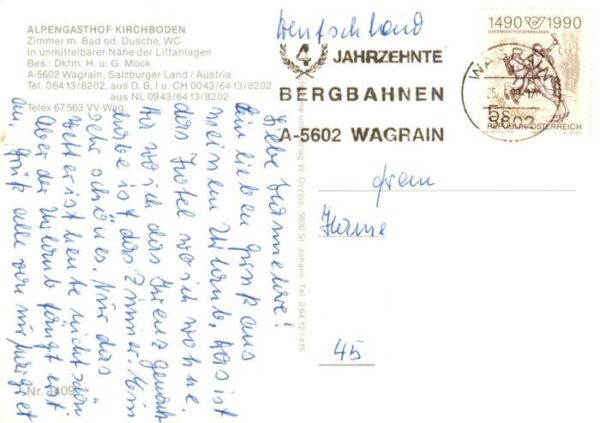 ALPENGASTHOF KIRCHBODEN
Zimmer m. Bad od. Dusche, WC
In unmittelbarer Nähe der Liftanlagen
Bes.: Dkfm. H. u. G. Mock
A-5602 Wagrain, Salzburger Land / Austria
Tel. 06413/8202, aus D, B, I u. CH 0043/6413/8202
aus NL 0943/6413/8202
Telex 67563 VV Wag.
Deutschland
4 JAHRZEHNTE
BERGBAHNEN
A-5602 WAGRAIN
1490 1990
5S
REPUBLIK ÖSTERREICH
WAGRAIN
5602
Liebe
Ein lieben Gruß aus
meinen Urlaub. Das ist
das Hotel wo ich wohne.
Da wo ich das Kreuz gemacht
habe ist das Zimmer. Ein
sehr schönes. Nur das
Wetter ist heute nicht schön
Aber der Urlaub fängt erst
an. Grüß alle von mir
Frau
45
W. Dczom, 5600 St. Johann, Tel. 0 64 12 / 416
Nr. 1409